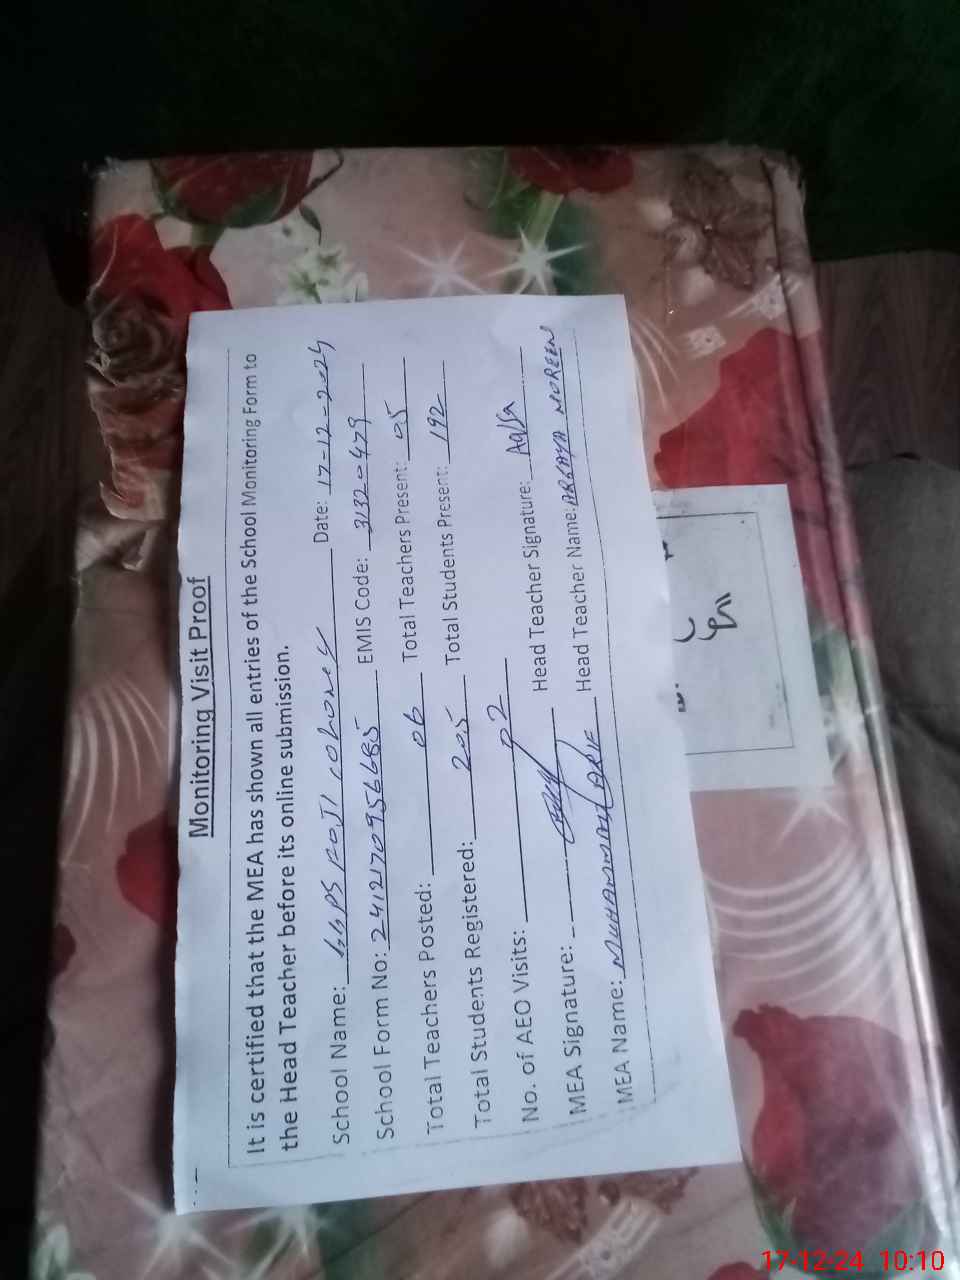 Monitoring Visit Proof
It is certified that the MEA has shown all entries of the School Monitoring Form to
the Head Teacher before its online submission.
School Name: GGPS KOJI COLONEY Date: 17-12-2024
School Form No: 2412170956685 EMIS Code: 31320479
Total Teachers Posted: 06 Total Teachers Present: 05
Total Students Registered: 205 Total Students Present: 192
No. of AEO Visits: 02
MEA Signature: Head Teacher Signature:
MEA Name: MUHAMMAD ARIF Head Teacher Name: NOREEN
17-12-24 10:10